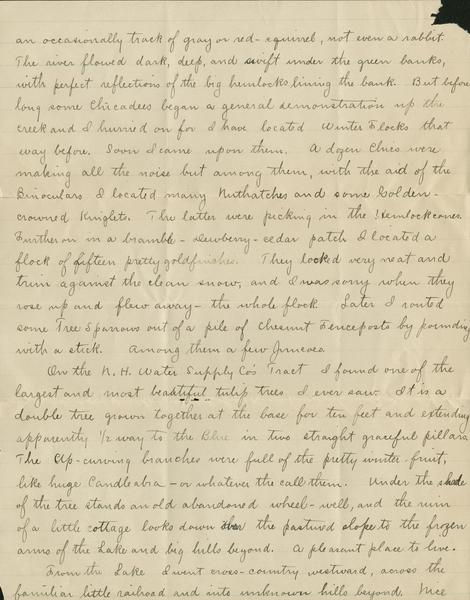 an occasionally track of gray or red-squirrel, not even a rabbit.
The river flowed dark, deep, and swift under the green banks,
with perfect reflections of the big hemlocks lining the bank. But before
long some Chicadees began a general demonstration up the
creek and I hurried on for I have located Winter Flocks that
way before. Soon I came upon them. A dozen Chics were
making all the noise but among them, with the aid of the
Binoculars I located many Nuthatches and some Golden-
crowned Kinglets. The latter were picking in the hemlock cones.
Further on in a bramble-dewberry-cedar patch I located a
flock of fifteen pretty goldfinches. They looked very neat and
trim against the clean snow, and I was sorry when they
rose up and flew away - the whole flock. Later I routed
some Tree Sparrows out of a pile of Chesnut Fenceposts by pounding
with a stick. Among them a few Juncoes.
On the N. H. Water Supply Co's Tract I found one of the
largest and most beautiful tulip trees I ever saw. It is a
double tree grown together at the base for ten feet and extending
apparently 1/2 way to the Blue in two straight graceful pillars.
The Up-curving branches were full of the pretty winter-fruit,
like huge Candleabra - or whatever the call them. Under the shade
of the tree stands an old abandoned wheel-well, and the ruin
of a little cottage looks down over the pastured slope to the frozen
arms of the Lake and big hills beyond. A pleasant place to live.
From the Lake I went cross-country westward, across the
familiar little railroad and into unknown hills beyond. Nice